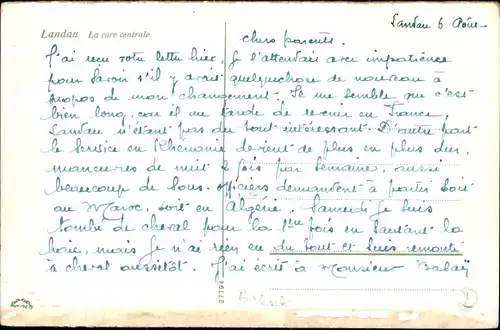 Landau 6 Août
Landau La cure centrale
chers parents.
J'ai reçu votre lettre hier, je l'attendais avec impatience
pour savoir s'il y avait quelquechose de nouveau à
propos de mon changement. Je me semble que c'est
bien long, car il me tarde de revenir en France,
Landau n'étant pas du tout intéressant. D'autre part
le service en Rhénanie devient de plus en plus dur,
manœuvres de nuit 2 fois par semaines, aussi
beaucoup de sous-officiers demandent à partir soit
au Maroc, soit en Algérie. Samedi je suis
tombé de cheval pour la 1ère fois en sautant la
haie, mais je n'ai rien eu du tout et suis remonté
à cheval aussitôt. J'ai écrit à Monsieur
27794